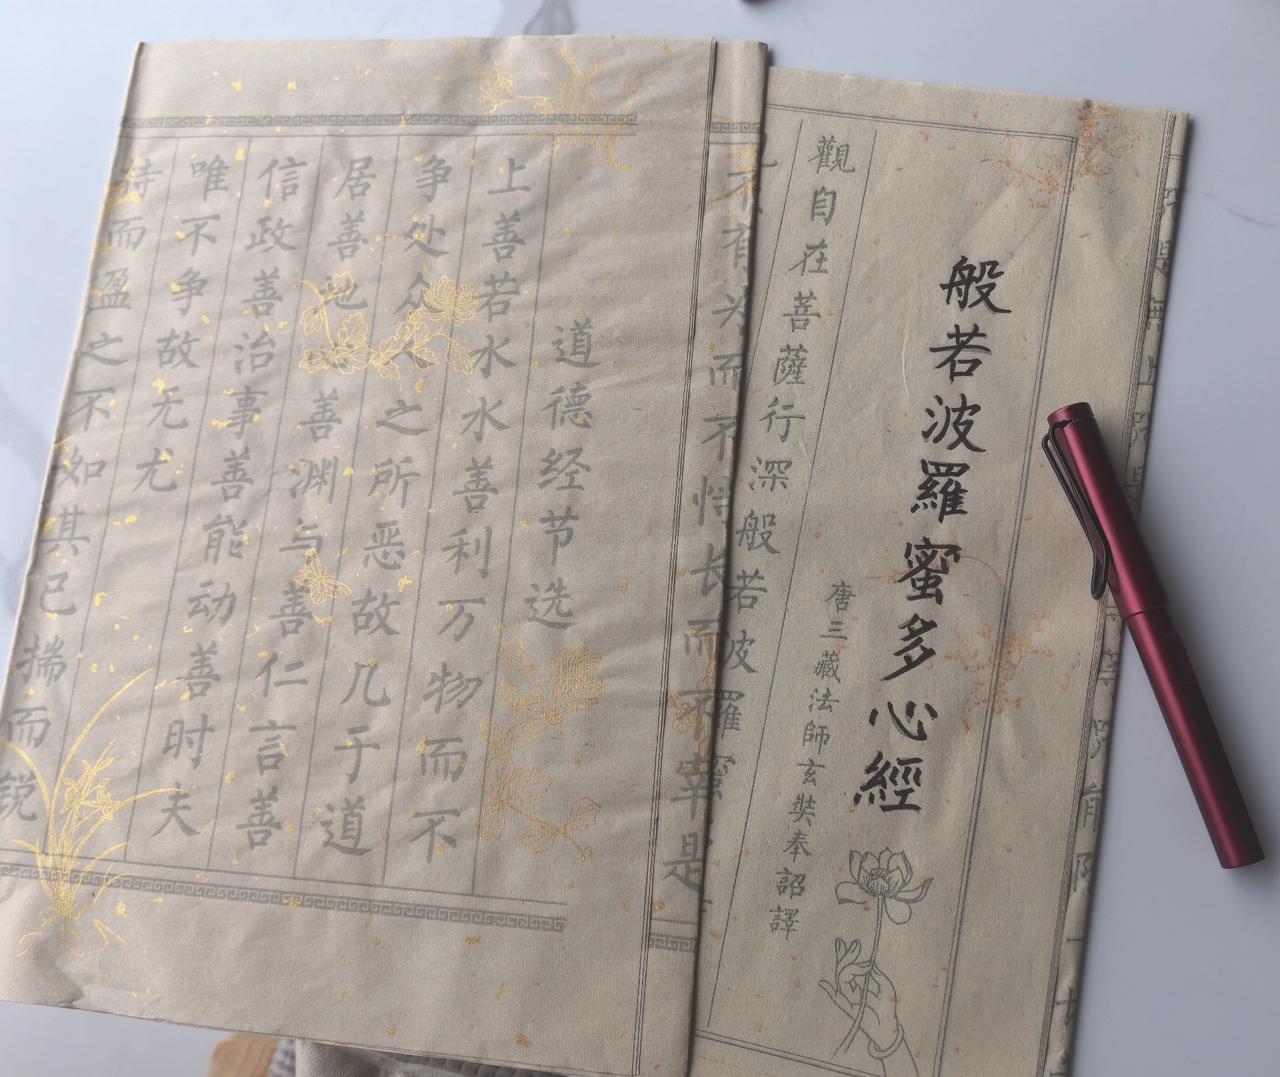 般若波羅蜜多心經
唐三藏法師玄奘奉詔譯
觀自在菩薩行深般若波羅蜜
道德经节选
上善若水水善利万物而不
争处众人之所恶故几于道
居善地善渊与善仁言善
信政善治事善能动善时夫
唯不争故无尤
持而盈之不如其已揣而锐
不有为而不恃长而不宰是